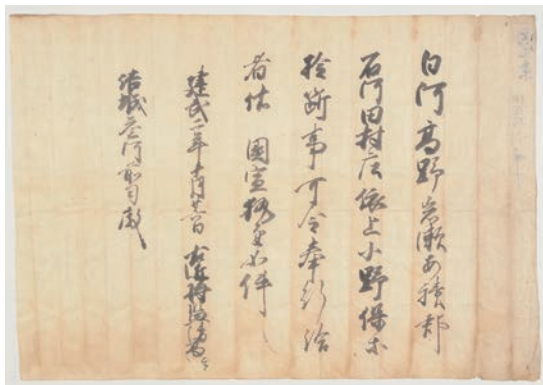 白河高野岩瀬安積郡
石河田村庄依上小野保等
検断事可令奉行給
者依 國宣執達如件
建武二年十月廿六日 右近将監清高
結城参河前司殿